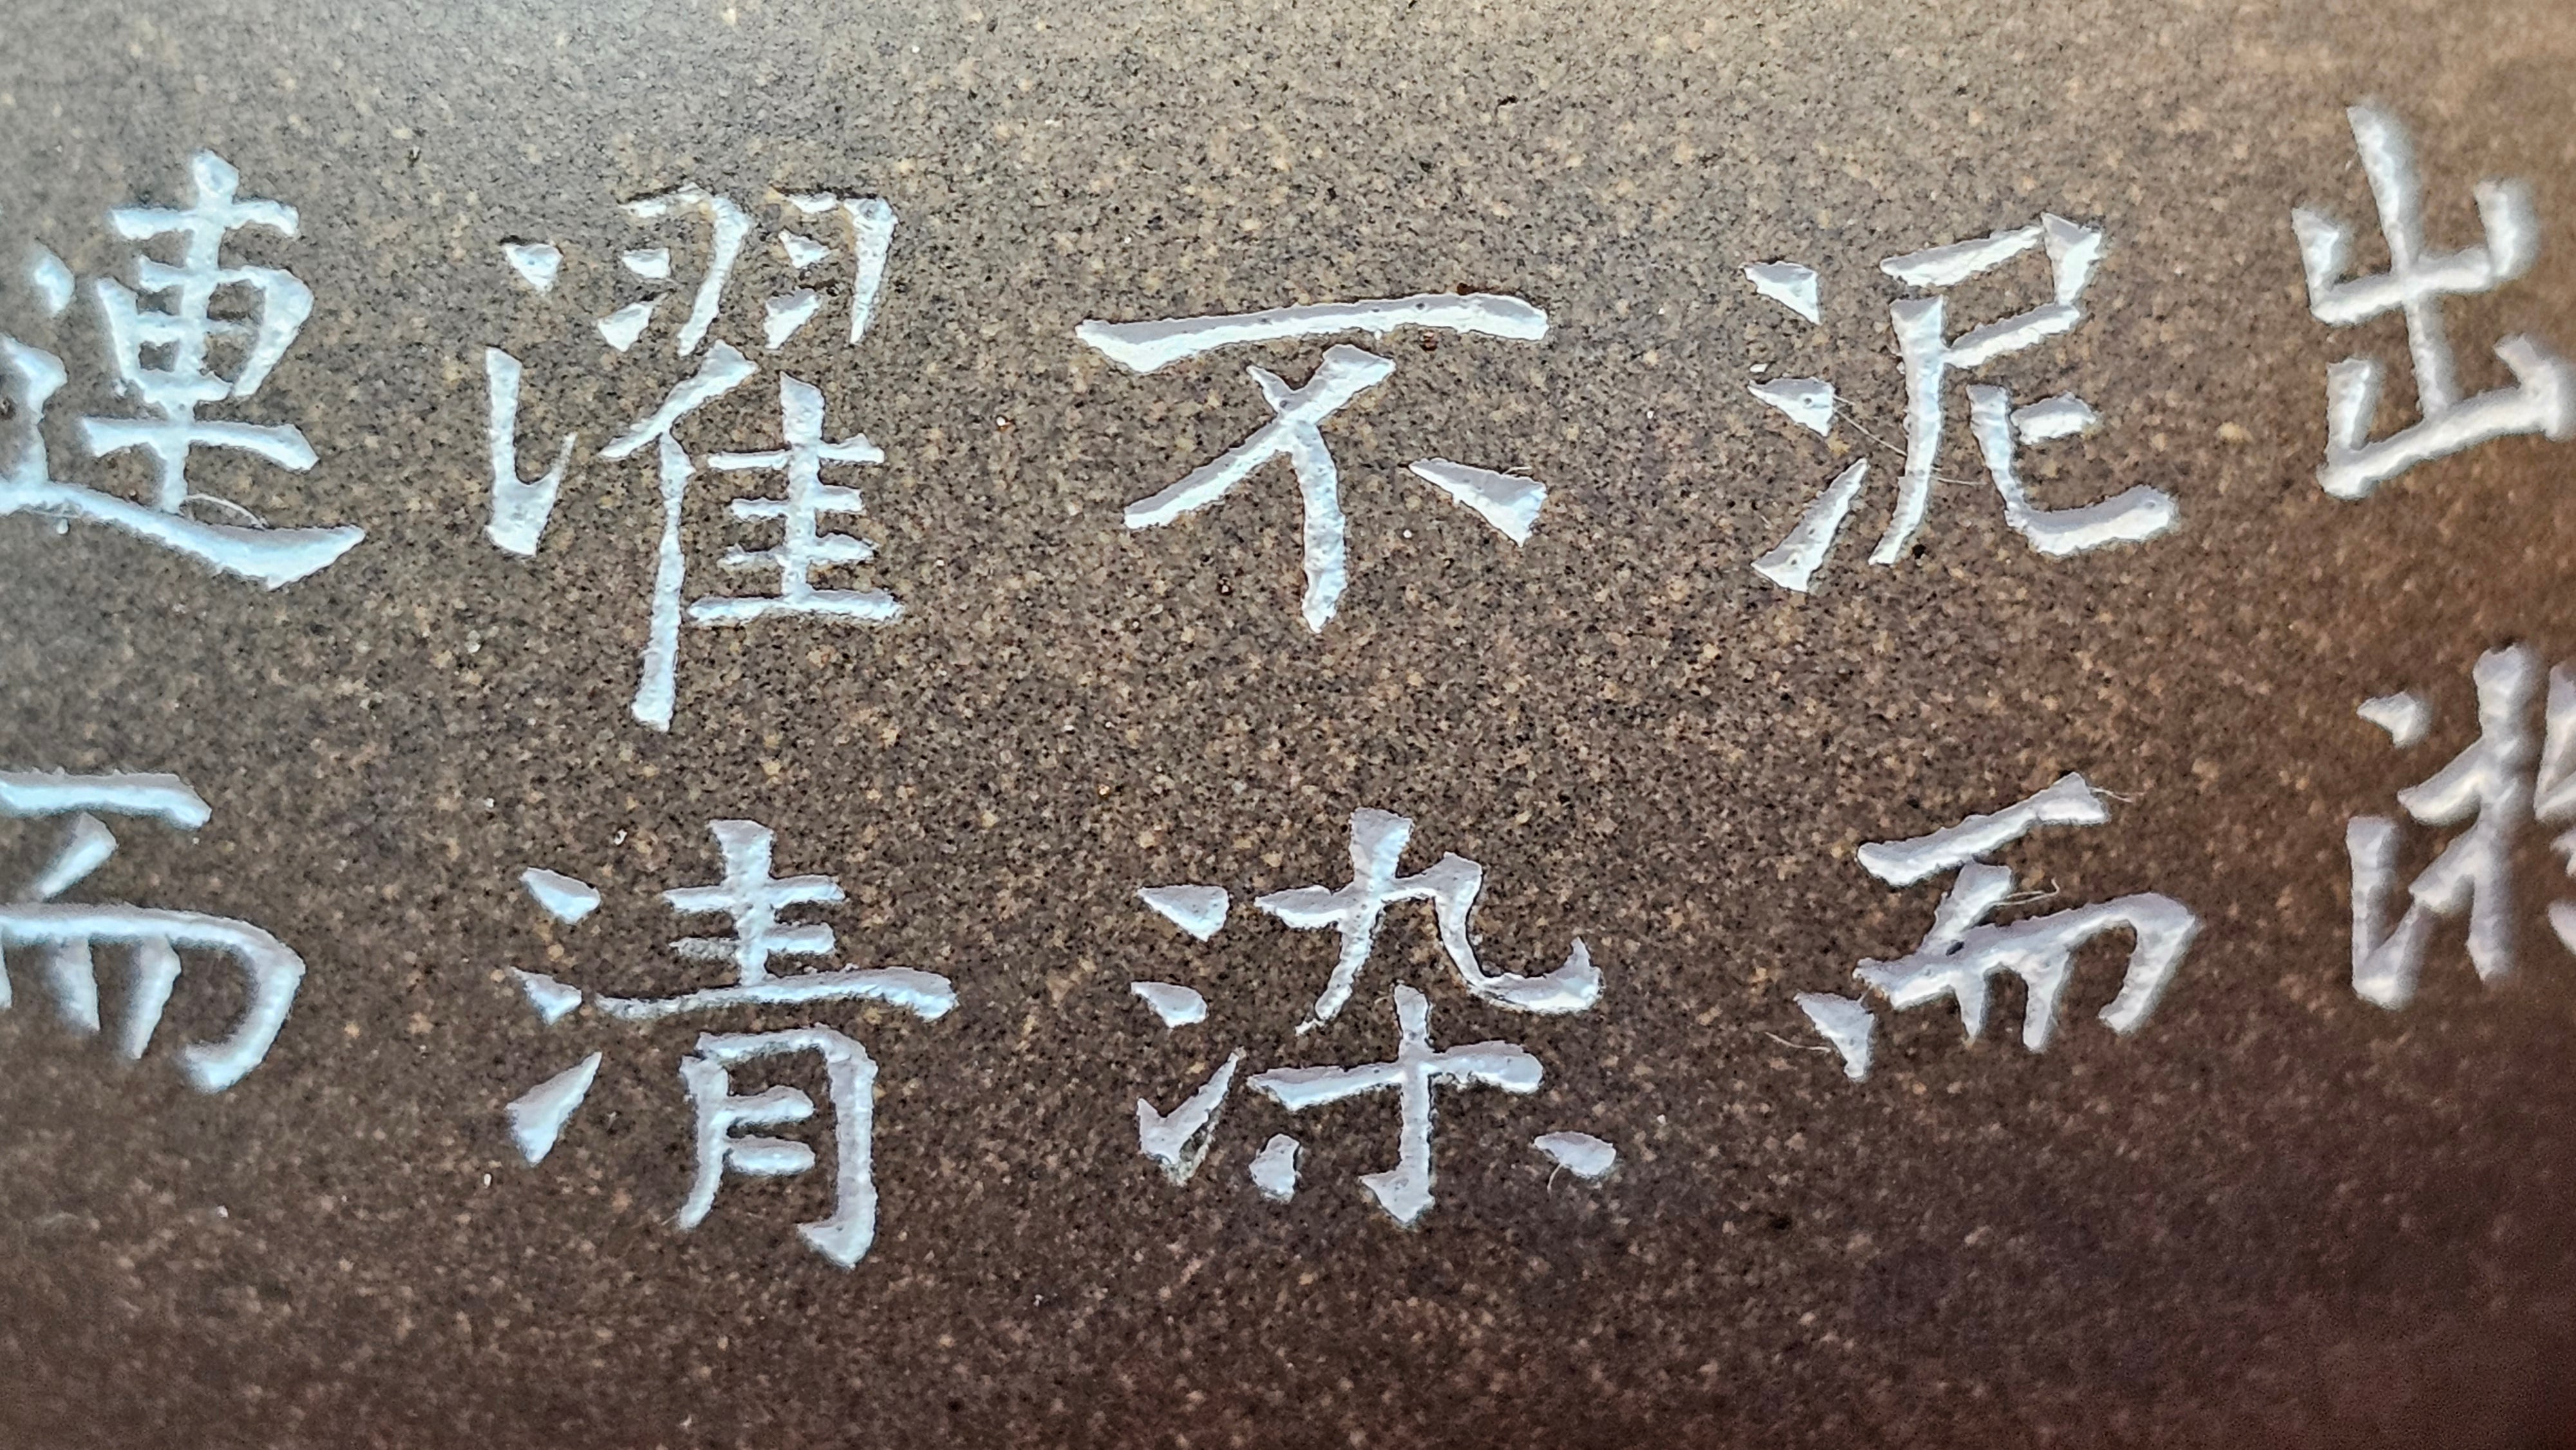 出淤
泥而
不染
濯清
連而